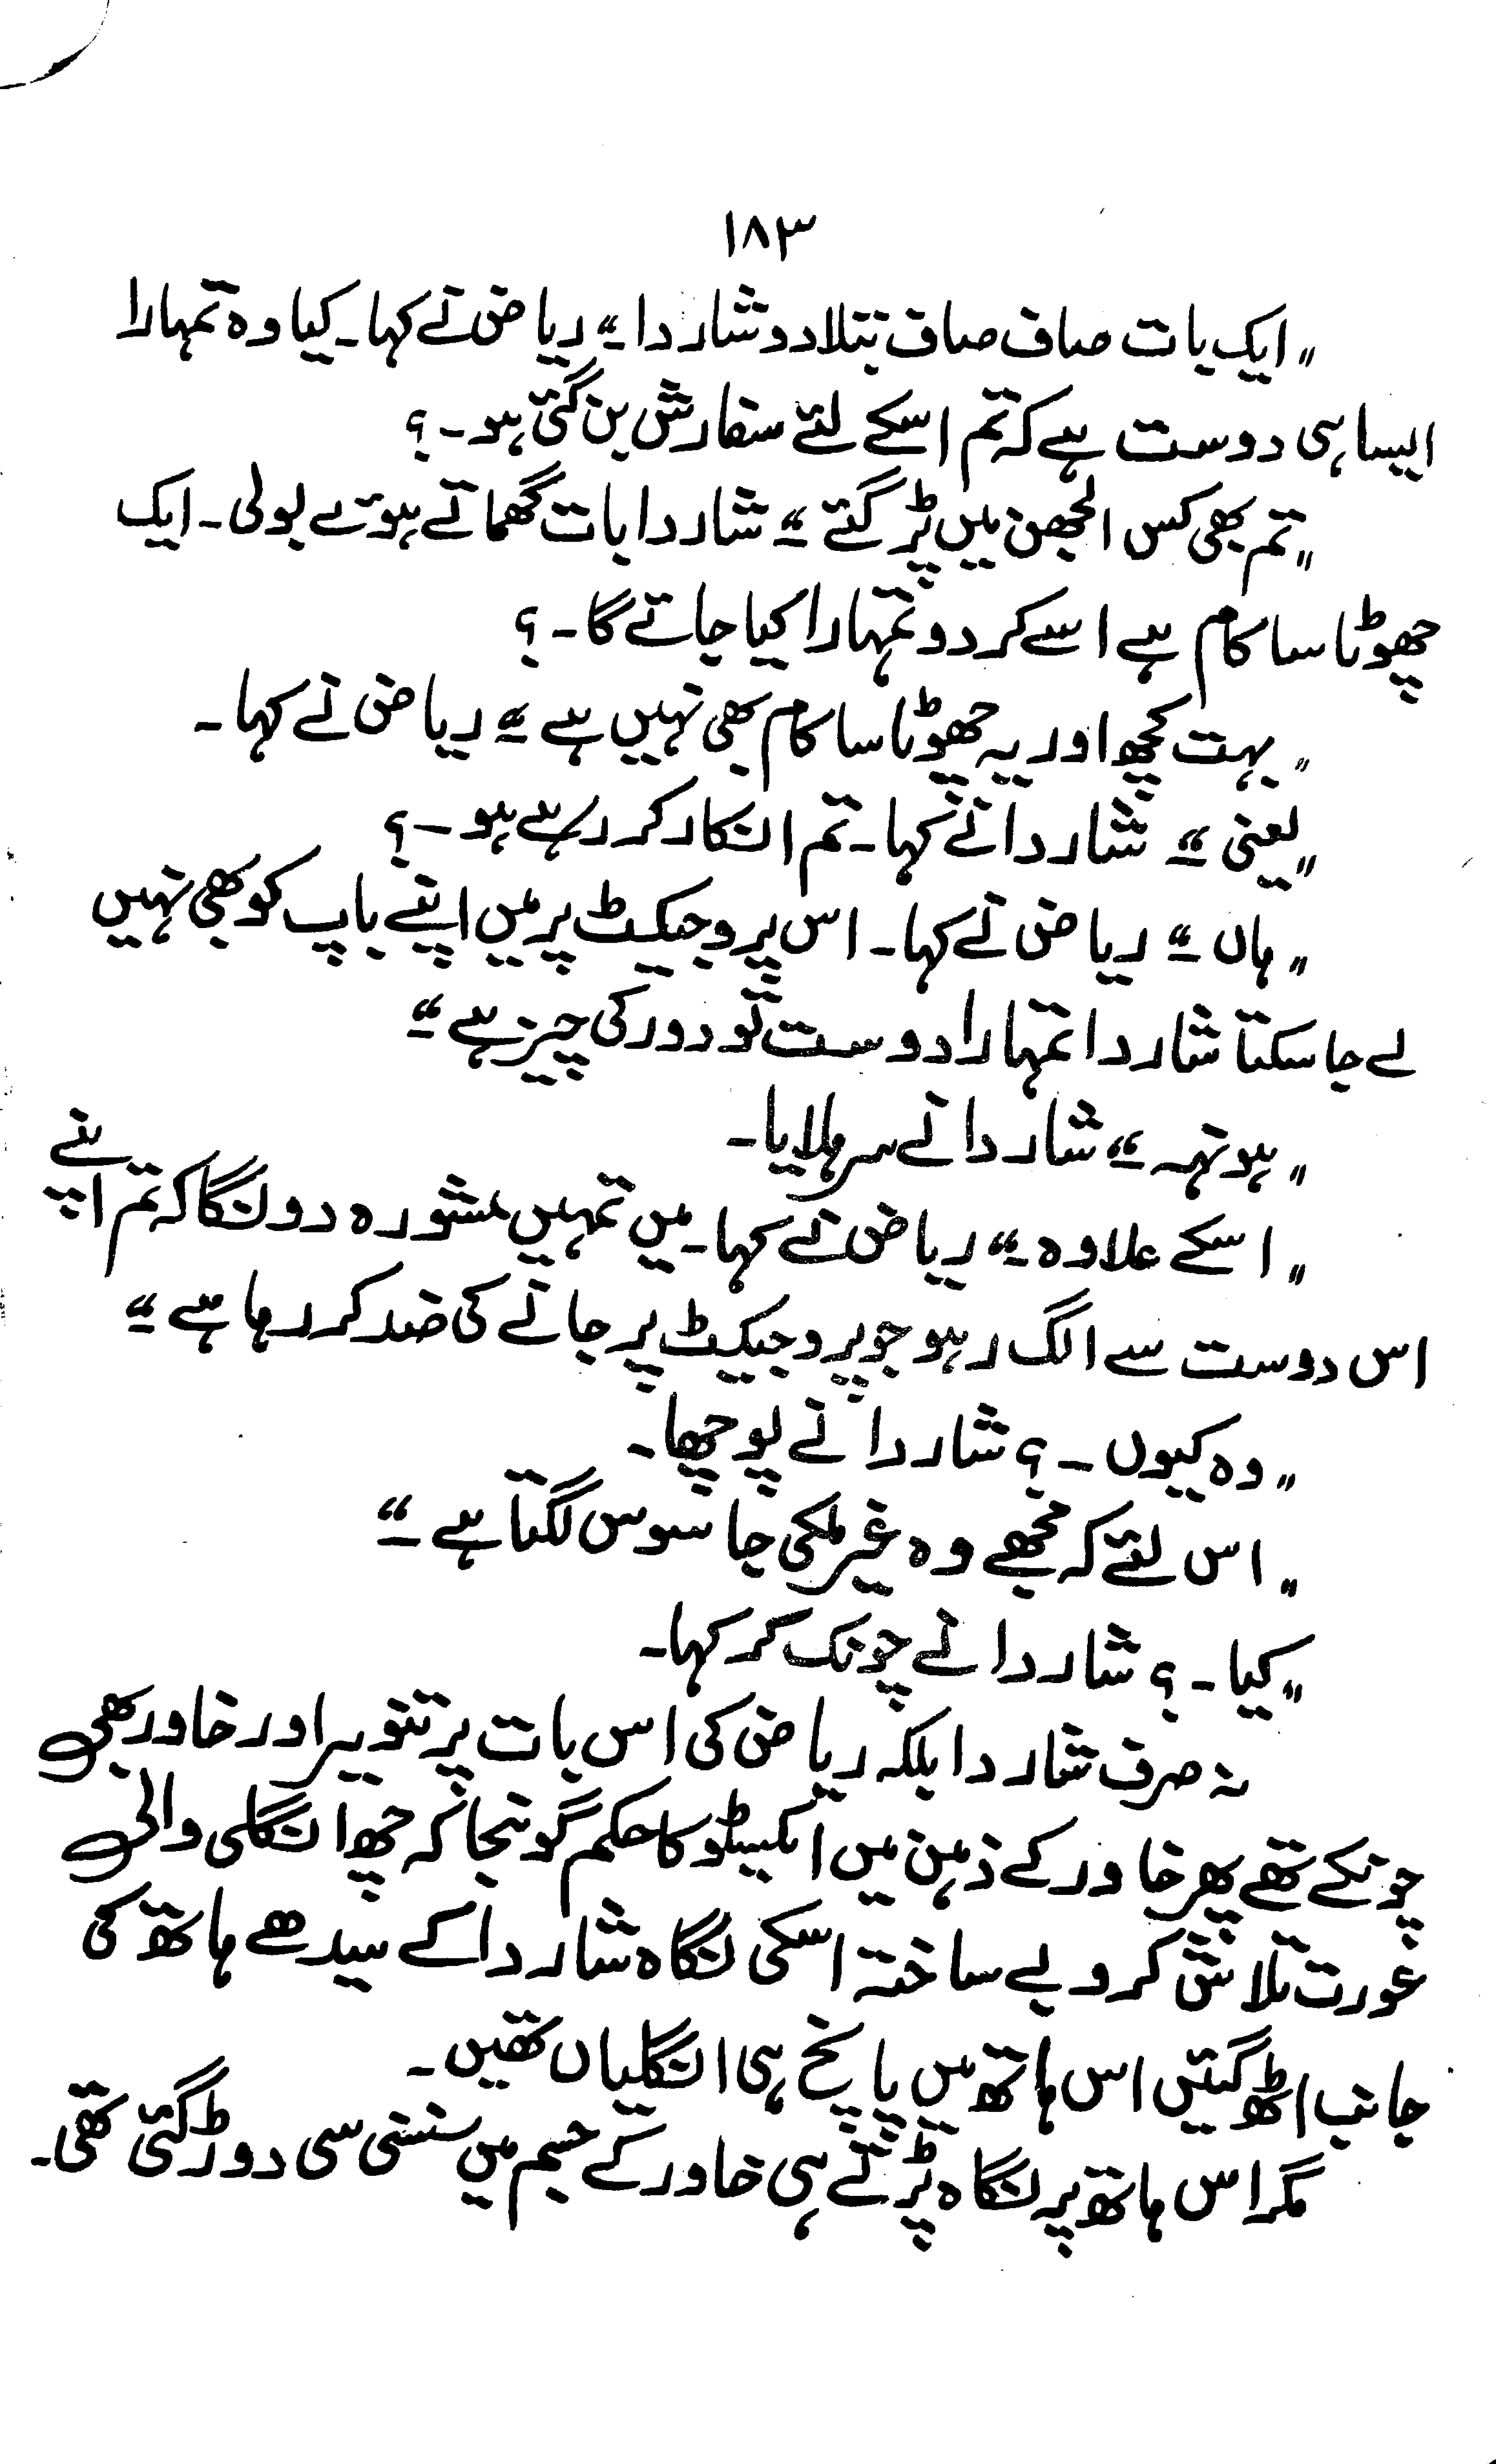 ۱۸۳
"ایک بات صاف صاف بتلا دو شاردا۔" ریاض نے کہا۔ کیا وہ تمہارا
ایسا ہی دوست ہے کہ تم اسکے لئے سفارش بن گئی ہو۔؟
"تم بھی کس الجھن میں پڑ گئے۔" شاردا بات گھماتے ہوئے بولی۔ ایک
چھوٹا سا کام ہے اسے کر دو تمہارا کیا جائے گا۔؟
"بہت کچھ اور یہ چھوٹا سا کام بھی نہیں ہے۔" ریاض نے کہا۔
"یعنی۔" شاردا نے کہا۔ تم انکار کر رہے ہو۔؟
"ہاں۔" ریاض نے کہا۔ اس پروجیکٹ پر میں اپنے باپ کو بھی نہیں
لے جا سکتا شاردا تمہارا دوست تو دور کی چیز ہے۔"
"ہونہہ۔" شاردا نے سر ہلایا۔
"اسکے علاوہ۔" ریاض نے کہا۔ میں تمہیں مشورہ دونگا کہ تم اپنے
اس دوست سے الگ رہو جو پروجیکٹ پر جانے کی ضد کر رہا ہے۔"
"وہ کیوں۔؟ شاردا نے پوچھا۔
"اس لئے کہ مجھے وہ غیر ملکی جاسوس لگتا ہے۔"
"کیا۔؟ شاردا نے چونک کر کہا۔
نہ صرف شاردا بلکہ ریاض کی اس بات پر تنویر اور خاور بھی
چونکے تھے پھر خاور کے ذہن میں ایکسٹو کا حکم گونجا کہ چھ انگلی والی
عورت تلاش کرو بے ساختہ اسکی نگاہ شاردا کے سیدھے ہاتھ کی
جانب اٹھ گئیں اس ہاتھ میں پانچ ہی انگلیاں تھیں۔
مگر اس ہاتھ پر نگاہ پڑتے ہی خاور کے جسم میں سنسنی سی دوڑ گئی تھی۔